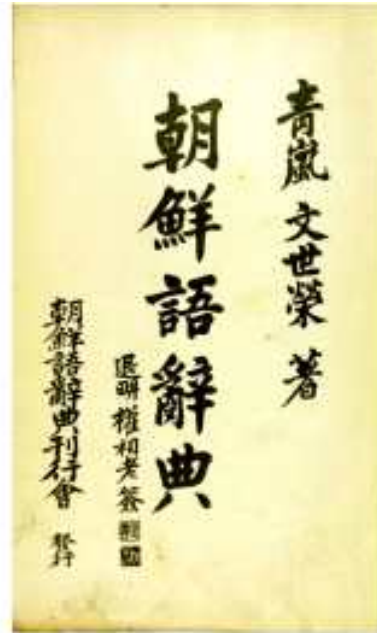 青嵐 文世榮 著
朝鮮語辭典
退耕 權相老 簽
朝鮮語辭典刊行會 發行